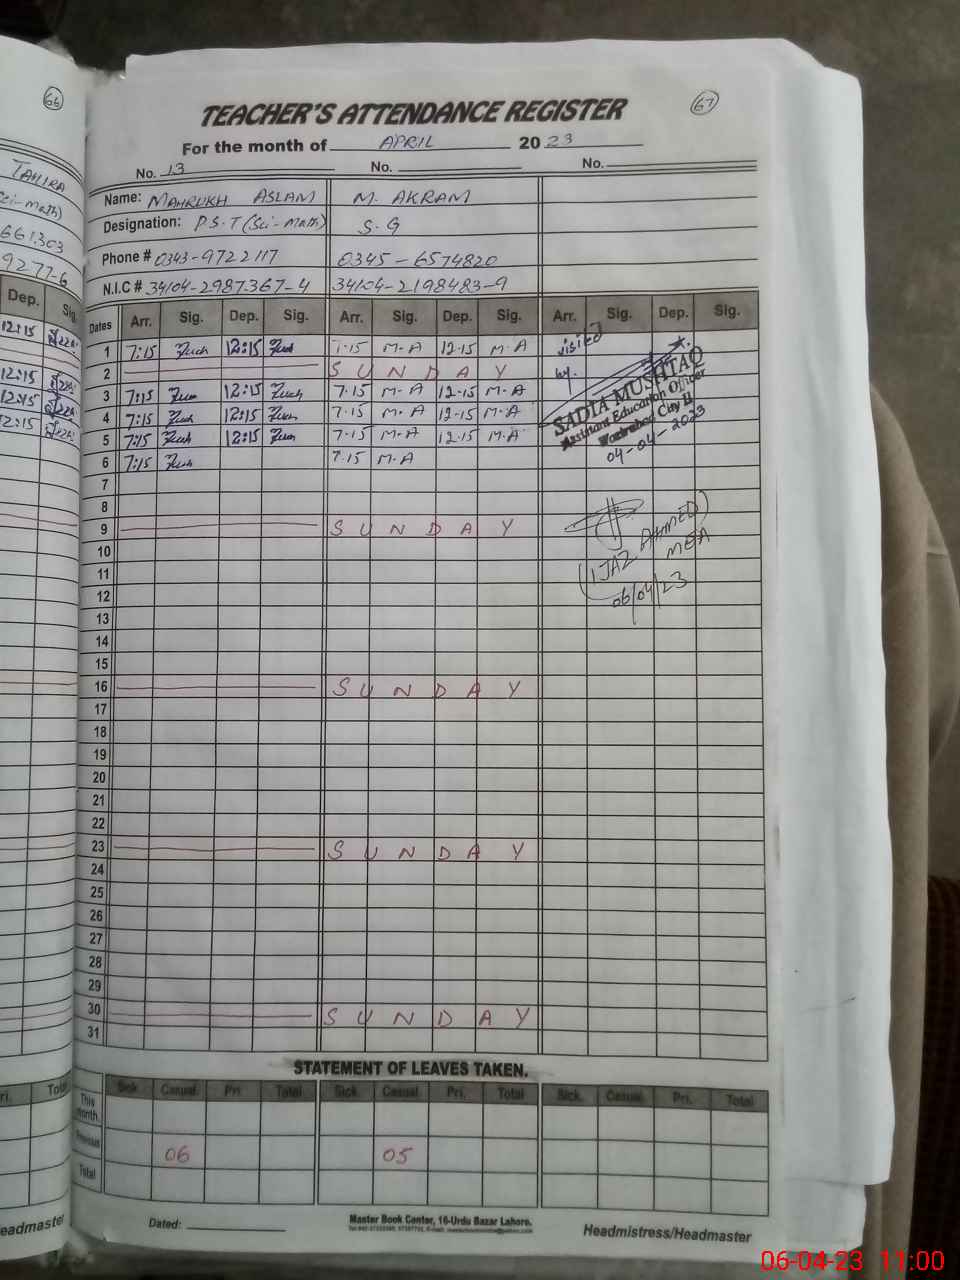 66
TAHIRA
Sci-math)
661303
9277-6
Dep. Sig.
12:15
12:15
12:15
12:15
ri. Total
eadmaster
67
TEACHER'S ATTENDANCE REGISTER
For the month of APRIL 2023
No. 13 No. No.
Name: MAHRUKH ASLAM M. AKRAM
Designation: P.S.T (Sci-Math) S.G
Phone # 0343-9722117 0345-6574820
N.I.C # 34104-2987367-4 34104-2198483-9
Dates Arr. Sig. Dep. Sig. Arr. Sig. Dep. Sig. Arr. Sig. Dep. Sig.
1 7:15 12:15 7.15 M.A 12.15 M.A
2 SUNDAY
3 7:15 12:15 7.15 M.A 12.15 M.A
4 7:15 12:15 7.15 M.A 12.15 M.A
5 7:15 12:15 7.15 M.A 12.15 M.A
6 7:15 7.15 M.A
7
8
9 SUNDAY
10
11
12
13
14
15
16 SUNDAY
17
18
19
20
21
22
23 SUNDAY
24
25
26
27
28
29
30 SUNDAY
31
visited
by.
SADIA MUSHTAQ
Assistant Education Officer
Wazirabad City II
04-04-2023
(IJAZ AHMED)
MEA
06/04/23
STATEMENT OF LEAVES TAKEN.
Sick Casual Pri. Total Sick. Casual Pri. Total Sick. Casual. Pri. Total
This month.
Previous 06 05
Total
Dated:
Master Book Center, 16-Urdu Bazar Lahore.
Headmistress/Headmaster
06-04-23 11:00